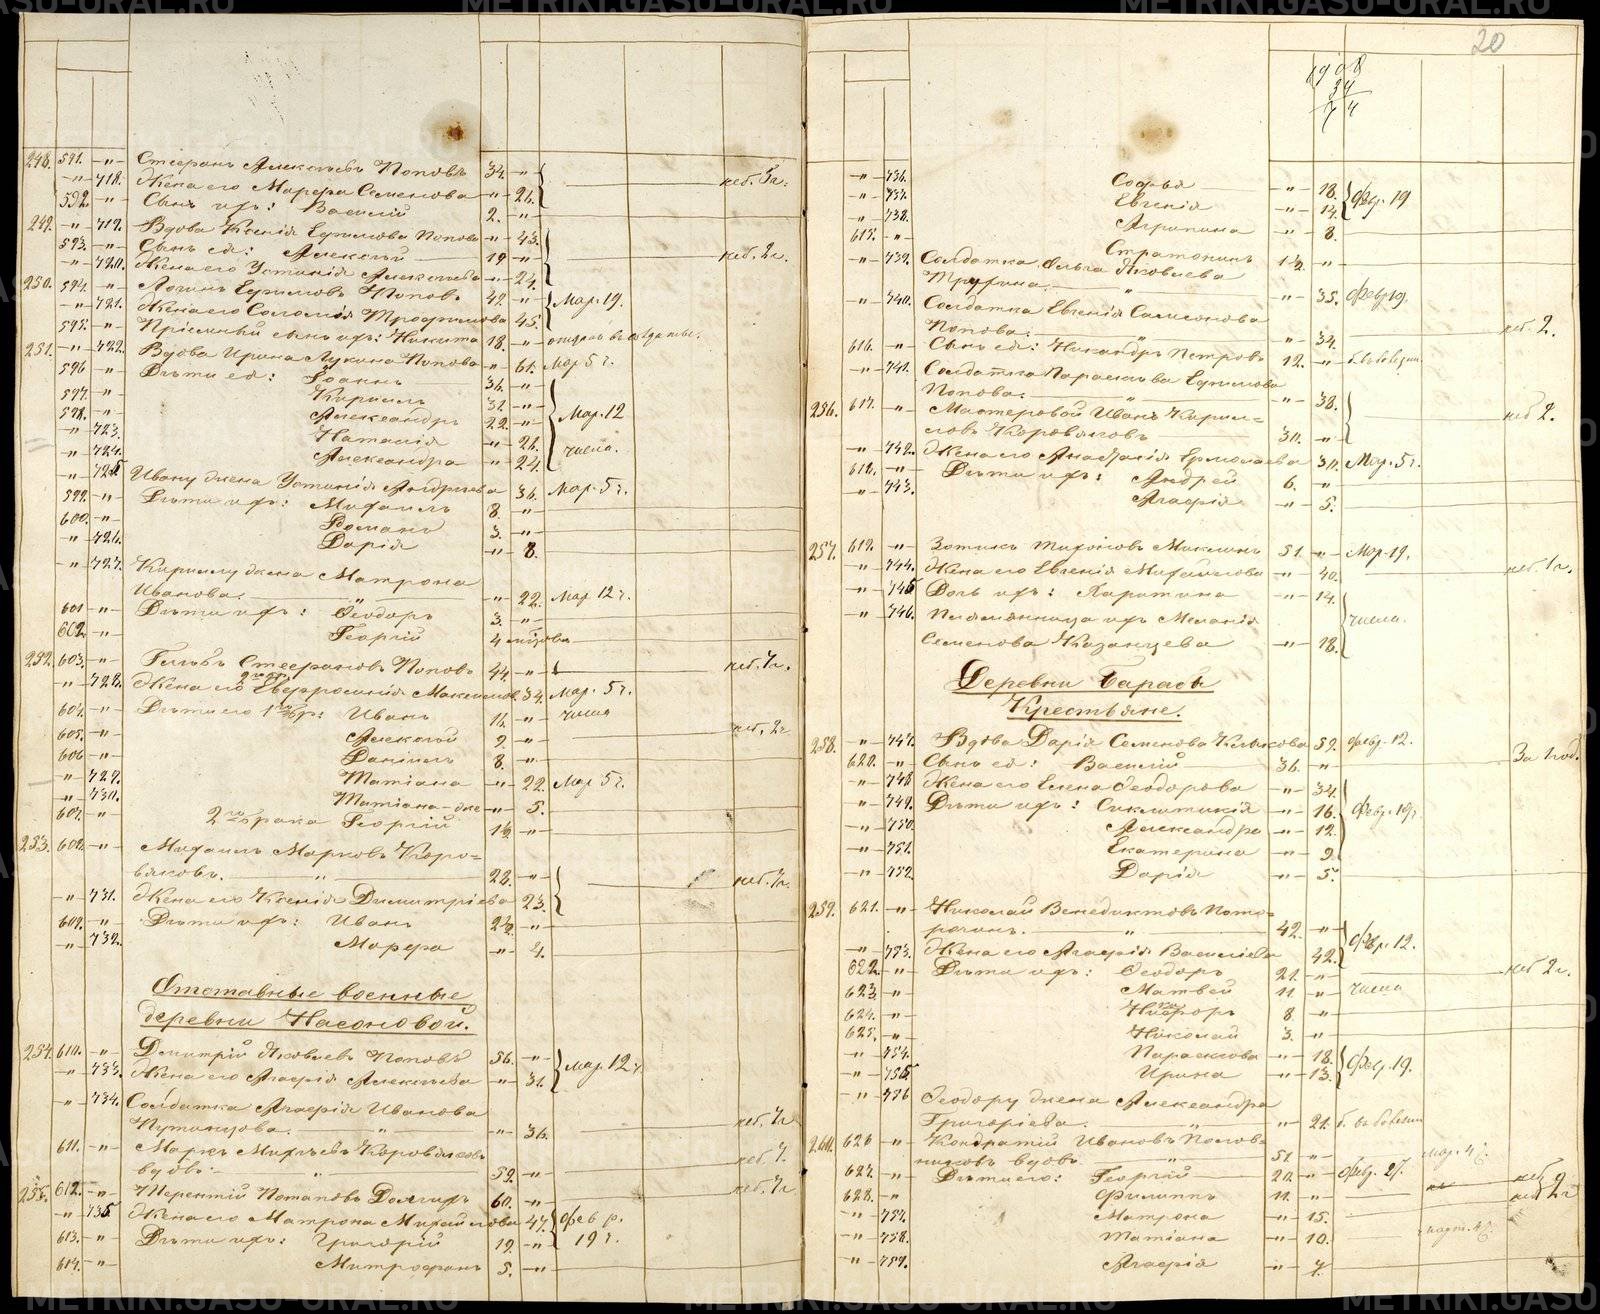 248. 591. -"- Стефанъ Алексѣевъ Поповъ 34. -"-
-"- 718. Жена его Марѳа Семенова -"- 26. неб. 5 г.
592. -"- Сынъ ихъ: Василій 2. -"-
249. -"- 719. Вдова Ксенія Ефимова Попова -"- 43.
593. -"- Сынъ ея: Алексѣй 19 -"- неб. 2 г.
-"- 720. Жена его Устинія Алексѣева -"- 24.
250. 594. -"- Логинъ Ефимовъ Поповъ 42. -"- Мар. 19.
-"- 721. Жена его Соломія Трофимова 45.
595. -"- Пріемный сынъ ихъ: Никита 18. -"-
251. -"- 722. Вдова Ирина Лукина Попова -"- 61. Мар. 5 г.
596 -"- Дѣти ея: Іоаннъ 36. -"-
597. -"- Кириллъ 31. -"-
598. -"- Александръ 22. -"- Мар. 12
-"- 723. Наталія -"- 26. числа.
-"- 724. Александра -"- 24.
-"- 725 Ивану жена Устинія Андреева -"- 36. Мар. 5 г.
599. -"- Дѣти ихъ: Михаилъ 8. -"-
600. -"- Романъ 3. -"-
-"- 726. Дарія -"- 8.
-"- 727. Кириллу жена Матрона
Иванова. -"- 22. Мар. 12 г.
601 -"- Дѣти ихъ: Ѳеодоръ 3. -"-
602. -"- Георгій 4 мѣсяца
252. 603. -"- Глѣбъ Стефановъ Поповъ 44. -"- неб. 7 г.
-"- 728. Жена его 2 бр. Евфросинія Максимова 34. Мар. 5 г.
604. -"- Дѣти его 1 бр: Иванъ 16. -"- числа
605. -"- Алексѣй 9. -"- неб. 2 г.
606 -"- Даніилъ 8. -"-
-"- 729. Татіана -"- 22. Мар 5 г.
-"- 730. Татіана-же -"- 5.
607. -"- 2го брака Георгій 1½ -"-
253. 608. -"- Михаилъ Марковъ Коро=
вяковъ. -"- 28. -"- неб. 7 г.
-"- 731. Жена его Ксенія Димитріева -"- 23.
609. -"- Дѣти ихъ: Иванъ 2½. -"-
-"- 732. Марѳа -"- 4.
Отставные военные
деревни Насоновой.
254. 610. -"- Дмитрій Яковлевъ Поповъ 56. -"- Мар. 12 г.
-"- 733. Жена его Агафія Алексѣева -"- 31.
-"- 734. Солдатка Агафія Иванова
Путинцова. -"- -"- 36. неб. 7 г.
611. -"- Маркъ Михѣевъ Коровяковъ
вдовъ. -"- 59. -"- неб. 7.
255. 612. -"- Терентій Потаповъ Долгихъ 60. -"- неб. 7 г.
-"- 735 Жена его Матрона Михайлова -"- 47. февр.
613. -"- Дѣти ихъ: Григорій 19. -"- 19 г.
614. -"- Митрофанъ 5. -"-
20
1908
34
74
-"- 736. Софья -"- 18. февр. 19
-"- 737. Евгенія -"- 14.
-"- 738. Агрипина -"- 8.
615. -"- Стратоникъ 1½. -"-
-"- 739. Солдатка Ольга Яковлева
-"- -"- 35. февр 19.
-"- 740. Солдатка Евгенія Самсонова
Попова. -"- -"- 34. неб. 2.
616. -"- Сынъ ея: Никандръ Петровъ 12. -"-
-"- 741. Солдатка Параскѣва Ефимова
Попова. -"- -"- 38.
256. 617. -"- Мастеровой Иванъ Кирил=
ловъ Коровяковъ 30. -"- неб 2.
-"- 742. Жена его Анастасія Ермолаева 30. Мар. 5 г.
618. -"- Дѣти ихъ: Андрей 6. -"-
-"- 743. Агафія -"- 5.
257. 619. -"- Зотикъ Тихоновъ Микшинъ 51. -"- Мар. 19.
-"- 744. Жена его Евгенія Михайлова -"- 40. неб. 1 г.
-"- 745 Дочь ихъ: Харитина -"- 14.
-"- 746. Племянница ихъ Меланія числа.
Семенова Казанцева -"- 18.
Деревни Бараба
Крестьяне.
258. -"- 747. Вдова Дарія Семенова Клюкова 59. февр. 12.
620. -"- Сынъ ея: Василій 36. -"- За 1 год.
-"- 748 Жена его Елена Ѳеодорова -"- 34.
-"- 749. Дѣти ихъ: Синклитикія -"- 16. Февр. 19 г.
-"- 750. Александра -"- 12.
-"- 751. Екатерина -"- 9.
-"- 752. Дарія -"- 5.
259. 621. -"- Николай Венедиктовъ Пато=
рочинъ. -"- 42. -"- февр. 12.
-"- 753. Жена его Агафія Васильева 42.
622. -"- Дѣти ихъ: Ѳеодоръ 21. -"- неб 2 г.
623. -"- Матвей 11. -"- числа
624. -"- Никифоръ 8 -"-
625. -"- Николай 3. -"-
-"- 754. Параскова -"- 18. февр. 19.
-"- 755 Ирина -"- 13.
-"- 756 Ѳеодору жена Александра
Григоріева. -"- -"- 21.
260. 626 -"- Кондратій Ивановъ Полов=
никовъ вдовъ. -"- 51. -"-
627. -"- Дѣти его: Георгій 20. -"- февр. 27. неб
628. -"- Филиппъ 11. -"- неб 2 г
-"- 757. Матрона -"- 15.
-"- 758. Татіана -"- 10.
-"- 759. Агафія -"- 7.
METRIKI.GASO-URAL.RU